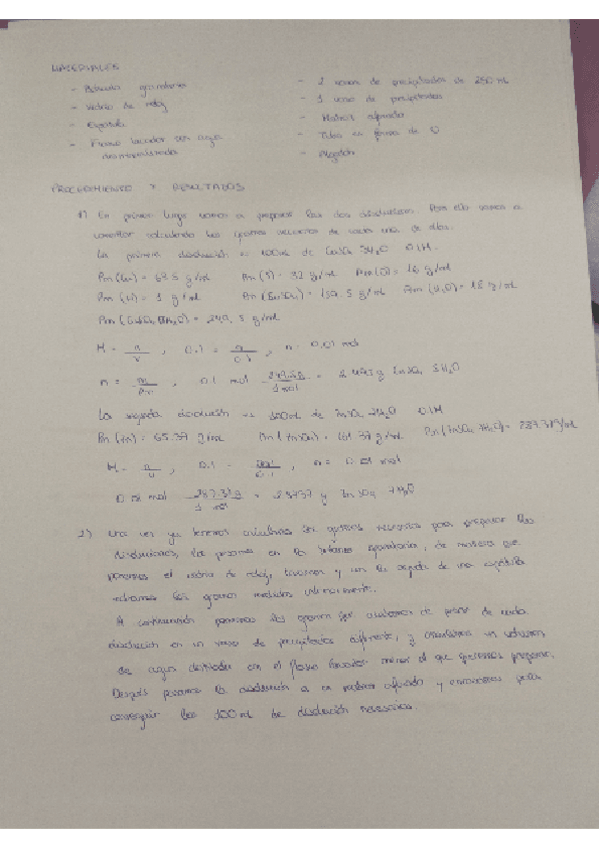 MATERIALES
- Báscula granataria
- Vidrio de reloj
- Espátula
- Frasco lavador con agua
desmineralizada
- 2 vasos de precipitados de 250 mL
- 1 vaso de precipitados
- Matraz aforado
- Tubo en forma de U
- Algodón
PROCEDIMIENTO Y RESULTADOS
1) En primer lugar vamos a preparar las dos disoluciones. Para ello vamos a
comenzar calculando los gramos necesarios de cada una de ellas.
La primera disolución es 100mL de CuSO4 5H2O 0.1M.
Pm (Cu) = 63.5 g/mol Pm (S) = 32 g/mol Pm (O) = 16 g/mol
Pm (H) = 1 g/mol Pm (CuSO4) = 159.5 g/mol Pm (H2O) = 18 g/mol
Pm (CuSO4 5H2O) = 249.5 g/mol
M = n/V , 0.1 = n/0.1 , n = 0.01 mol
n = m/Pm , 0.1 mol 249.5g/1 mol = 2.495g CuSO4 5H2O
La segunda disolución es 100mL de ZnSO4 7H2O 0.1M
Pm (Zn) = 65.37 g/mol Pm (ZnSO4) = 161.37 g/mol Pm (ZnSO4 7H2O) = 287.37g/mol
M = n/V , 0.1 = /0.1 , n = 0.01 mol
0.01 mol 287.37g/1 mol = 2.8737 g ZnSO4 7H2O
2) Una vez ya tenemos calculados los gramos necesarios para preparar las
disoluciones, los pesamos en la balanza granataria, de manera que
ponemos el vidrio de reloj, taramos y con la ayuda de una espátula
echamos los gramos medidos anteriormente.
A continuación ponemos los gramos que acabamos de pesar de cada
disolución en un vaso de precipitados diferente, y añadimos un volumen
de agua destilada con el frasco lavador menor el que queremos preparar.
Después pasamos la disolución a un matraz aforado y enrasamos para
conseguir los 100 mL de disolución necesarios.